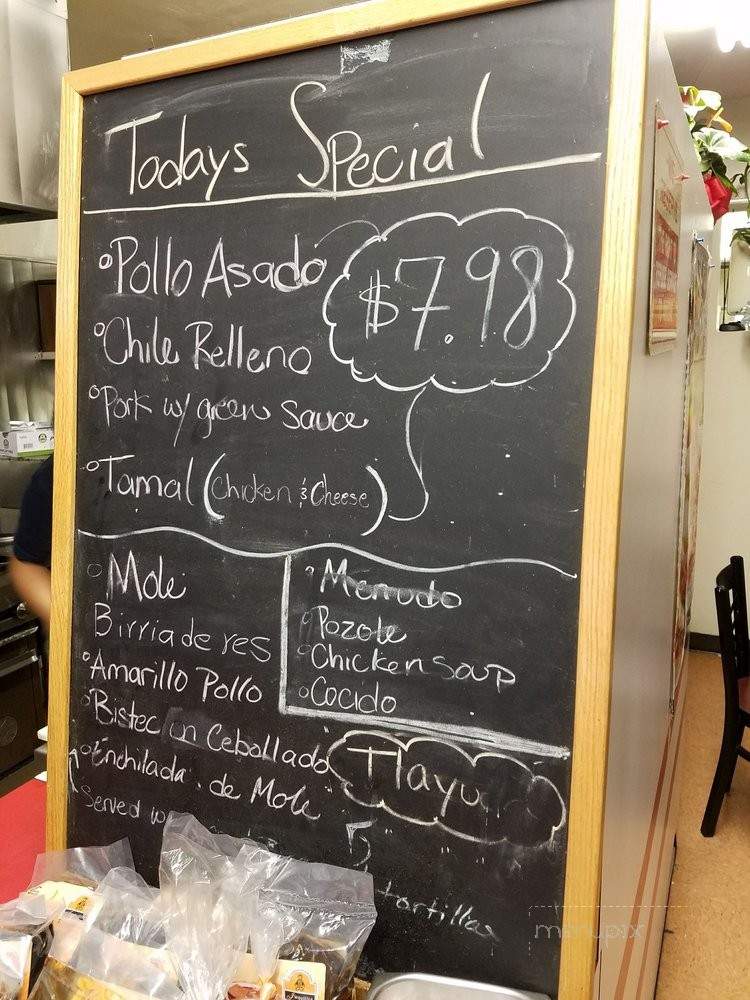 Todays Special
Pollo Asado
$7.98
Chile Relleno
Pork w/ green sauce
Tamal (Chicken & Cheese)
Mole
Birria de res
Amarillo Pollo
Bistec en Cebollado
Enchilada de Mole
Served w
Menudo
Pozole
Chicken soup
Cocido
Tlayu
tortillas
menupix